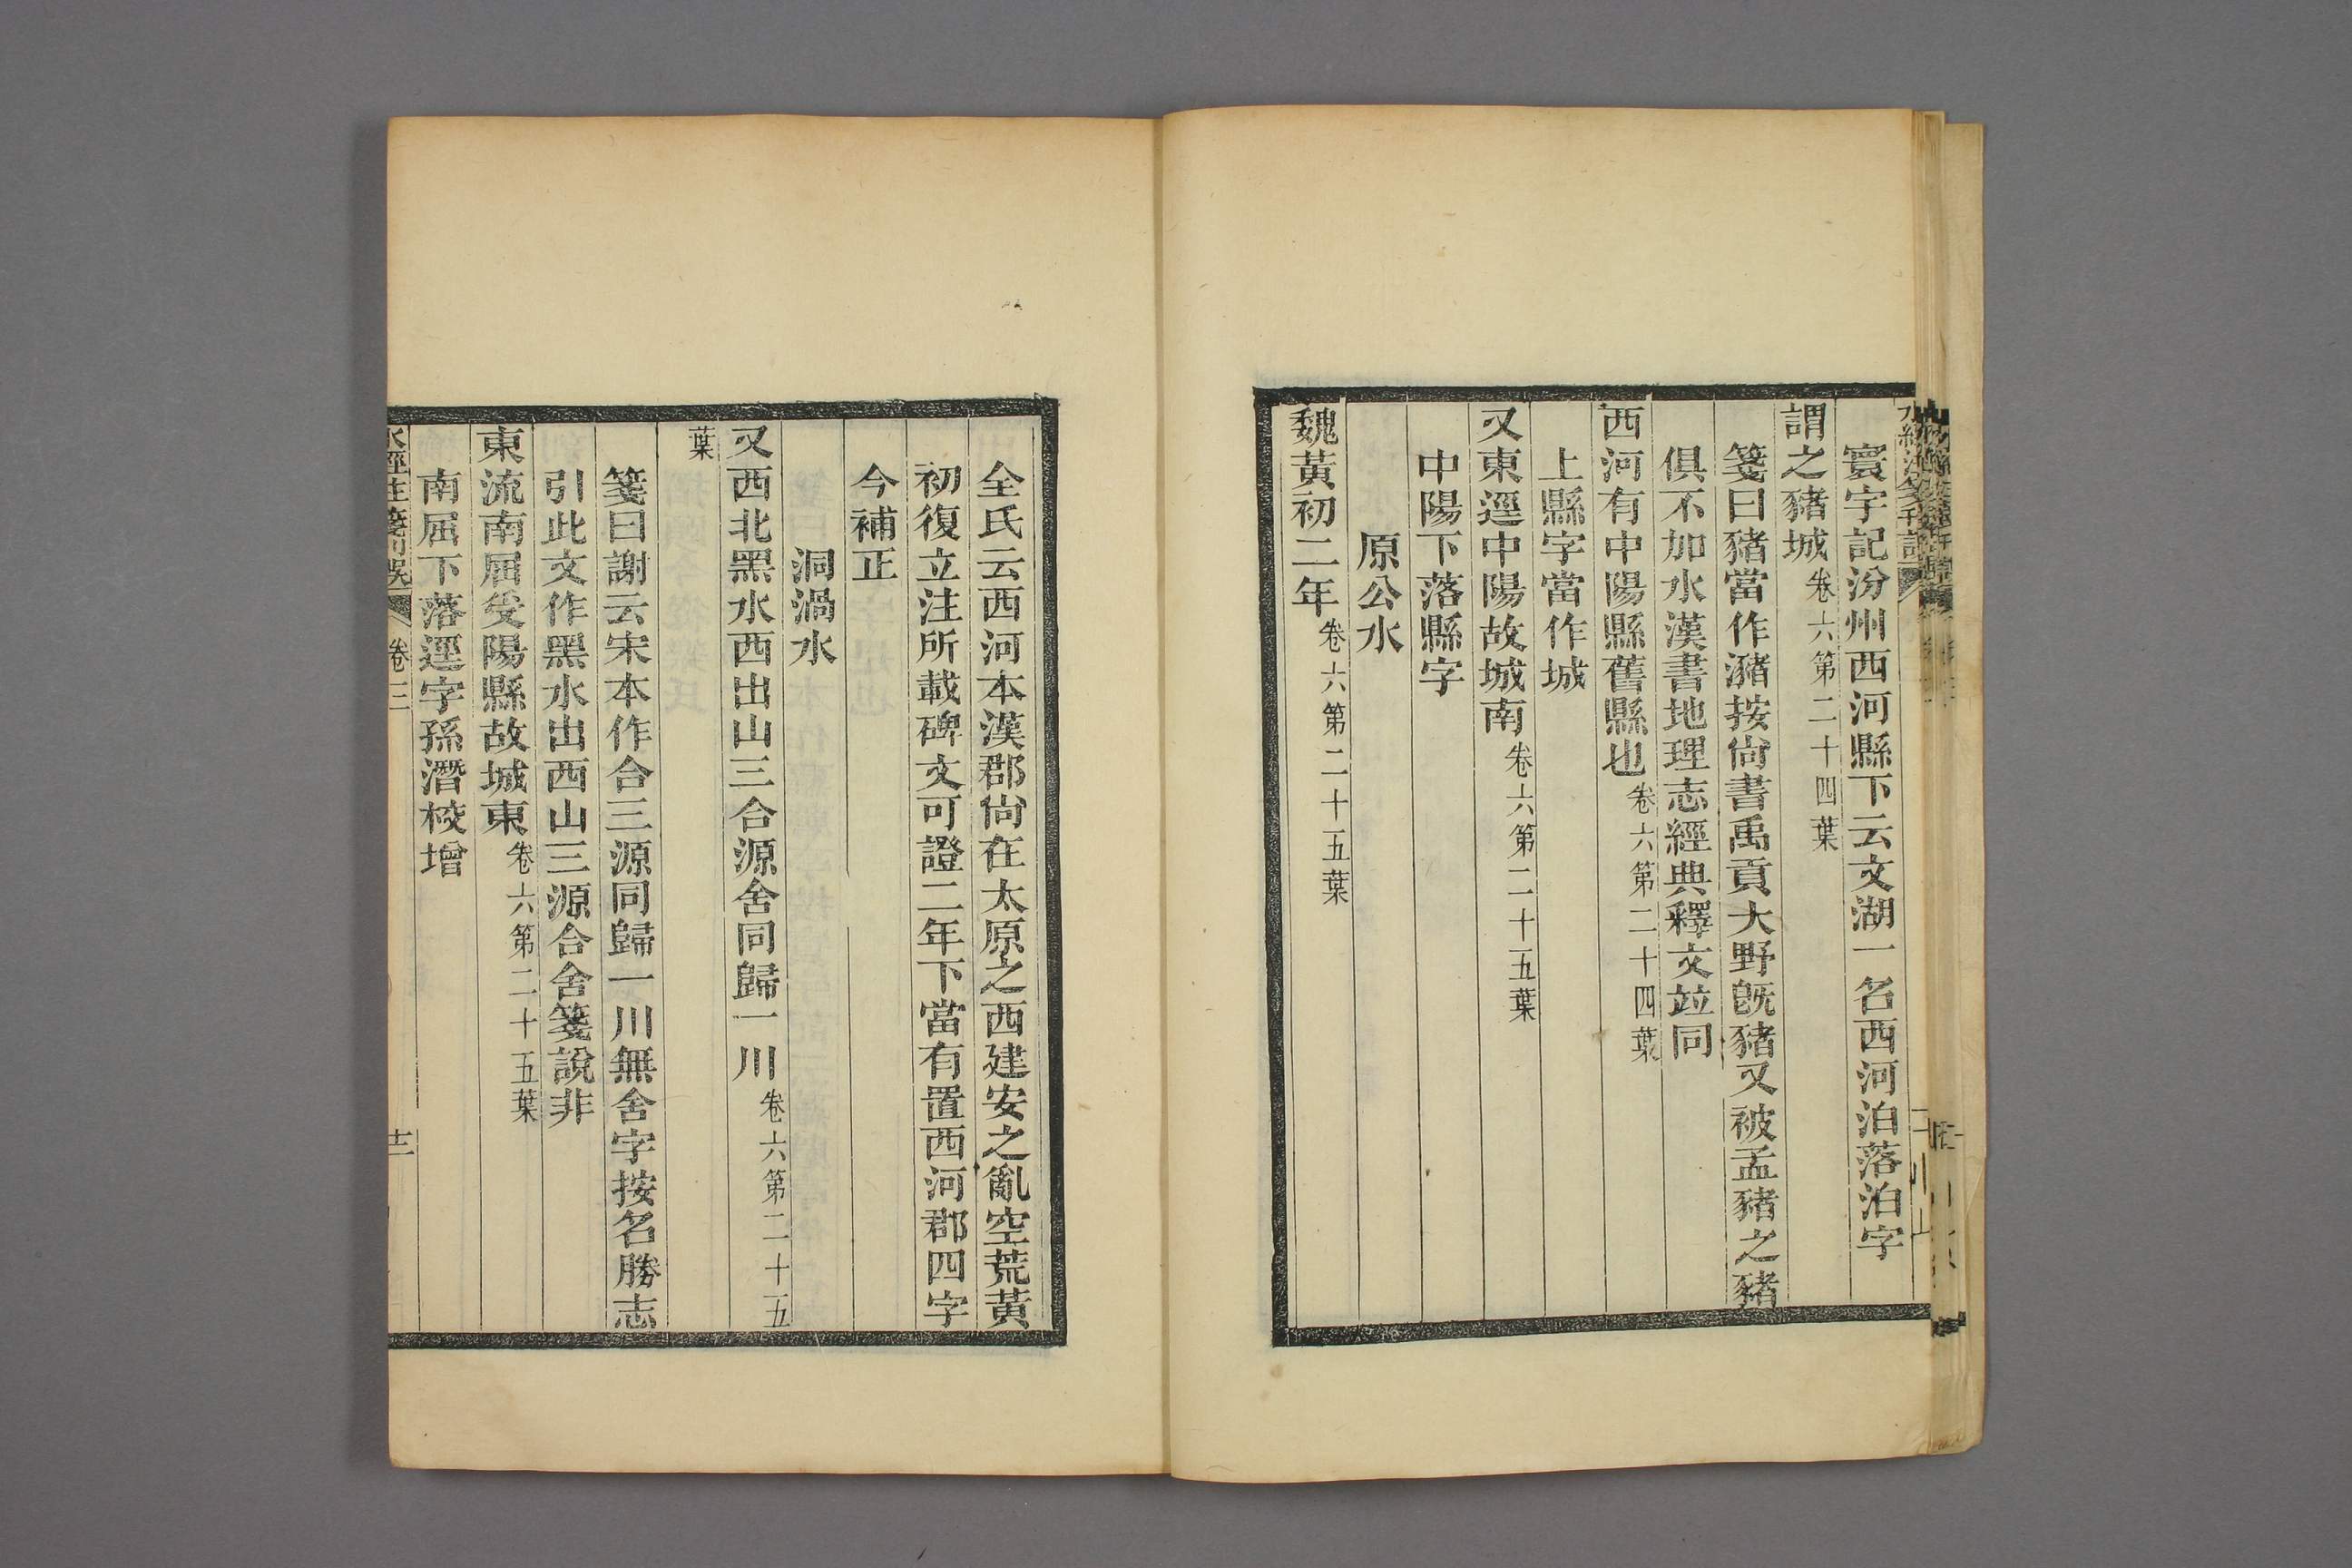 寰宇記汾州西河縣下云文湖一名西河泊落泊字
謂之豬城卷六第二十四葉
箋曰豬當作瀦按尙書禹貢大野旣豬又被孟豬之豬
俱不加水漢書地理志經典釋文竝同
西河有中陽縣舊縣也卷六第二十四葉
上縣字當作城
又東逕中陽故城南卷六第二十五葉
中陽下落縣字
原公水
魏黃初二年卷六第二十五葉
全氏云西河本漢郡尙在太原之西建安之亂空荒黃
初復立注所載碑文可證二年下當有置西河郡四字
今補正
洞渦水
又西北黑水西出山三合源舍同歸一川卷六第二十五
葉
箋曰謝云宋本作合三源同歸一川無舍字按名勝志
引此文作黑水出西山三源合舍箋說非
東流南屈受陽縣故城東卷六第二十五葉
南屈下落逕字孫潛校增
水經注箋刊誤 卷三 十二